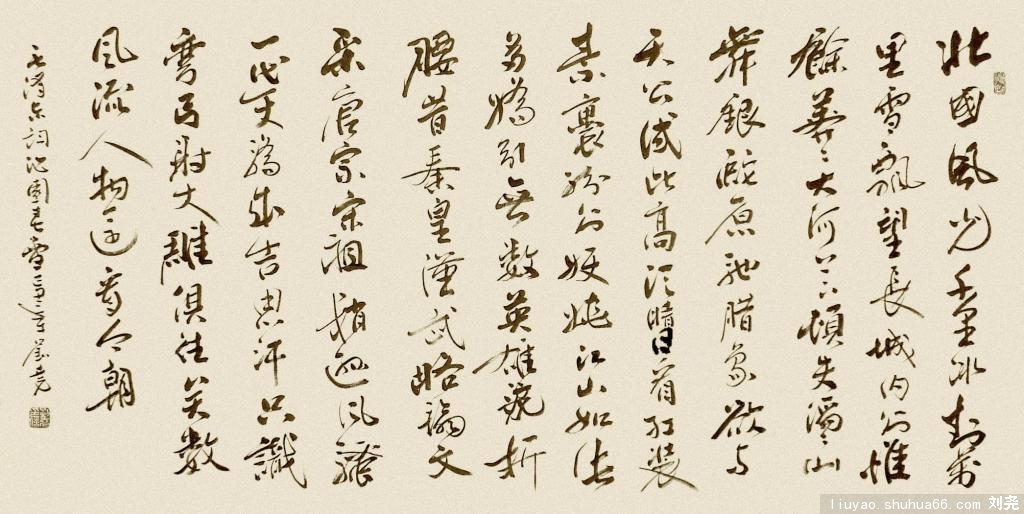 北國風光千里冰封萬
里雪飄望長城内外惟
餘莽〻大河上下頓失滔〻山
舞銀蛇原馳腊象欲与
天公试比高须晴日看红装
素裹紛外妖嬈江山如此
多嬌引無數英雄競折
腰昔秦皇漢武略输文
采唐宗宋祖稍逊风騷
一代天骄成吉思汗只識
彎弓射大雕俱往矣數
風流人物还看今朝
毛泽东词沁園春雪 刘尧
liuyao.shuhua66.com 刘尧